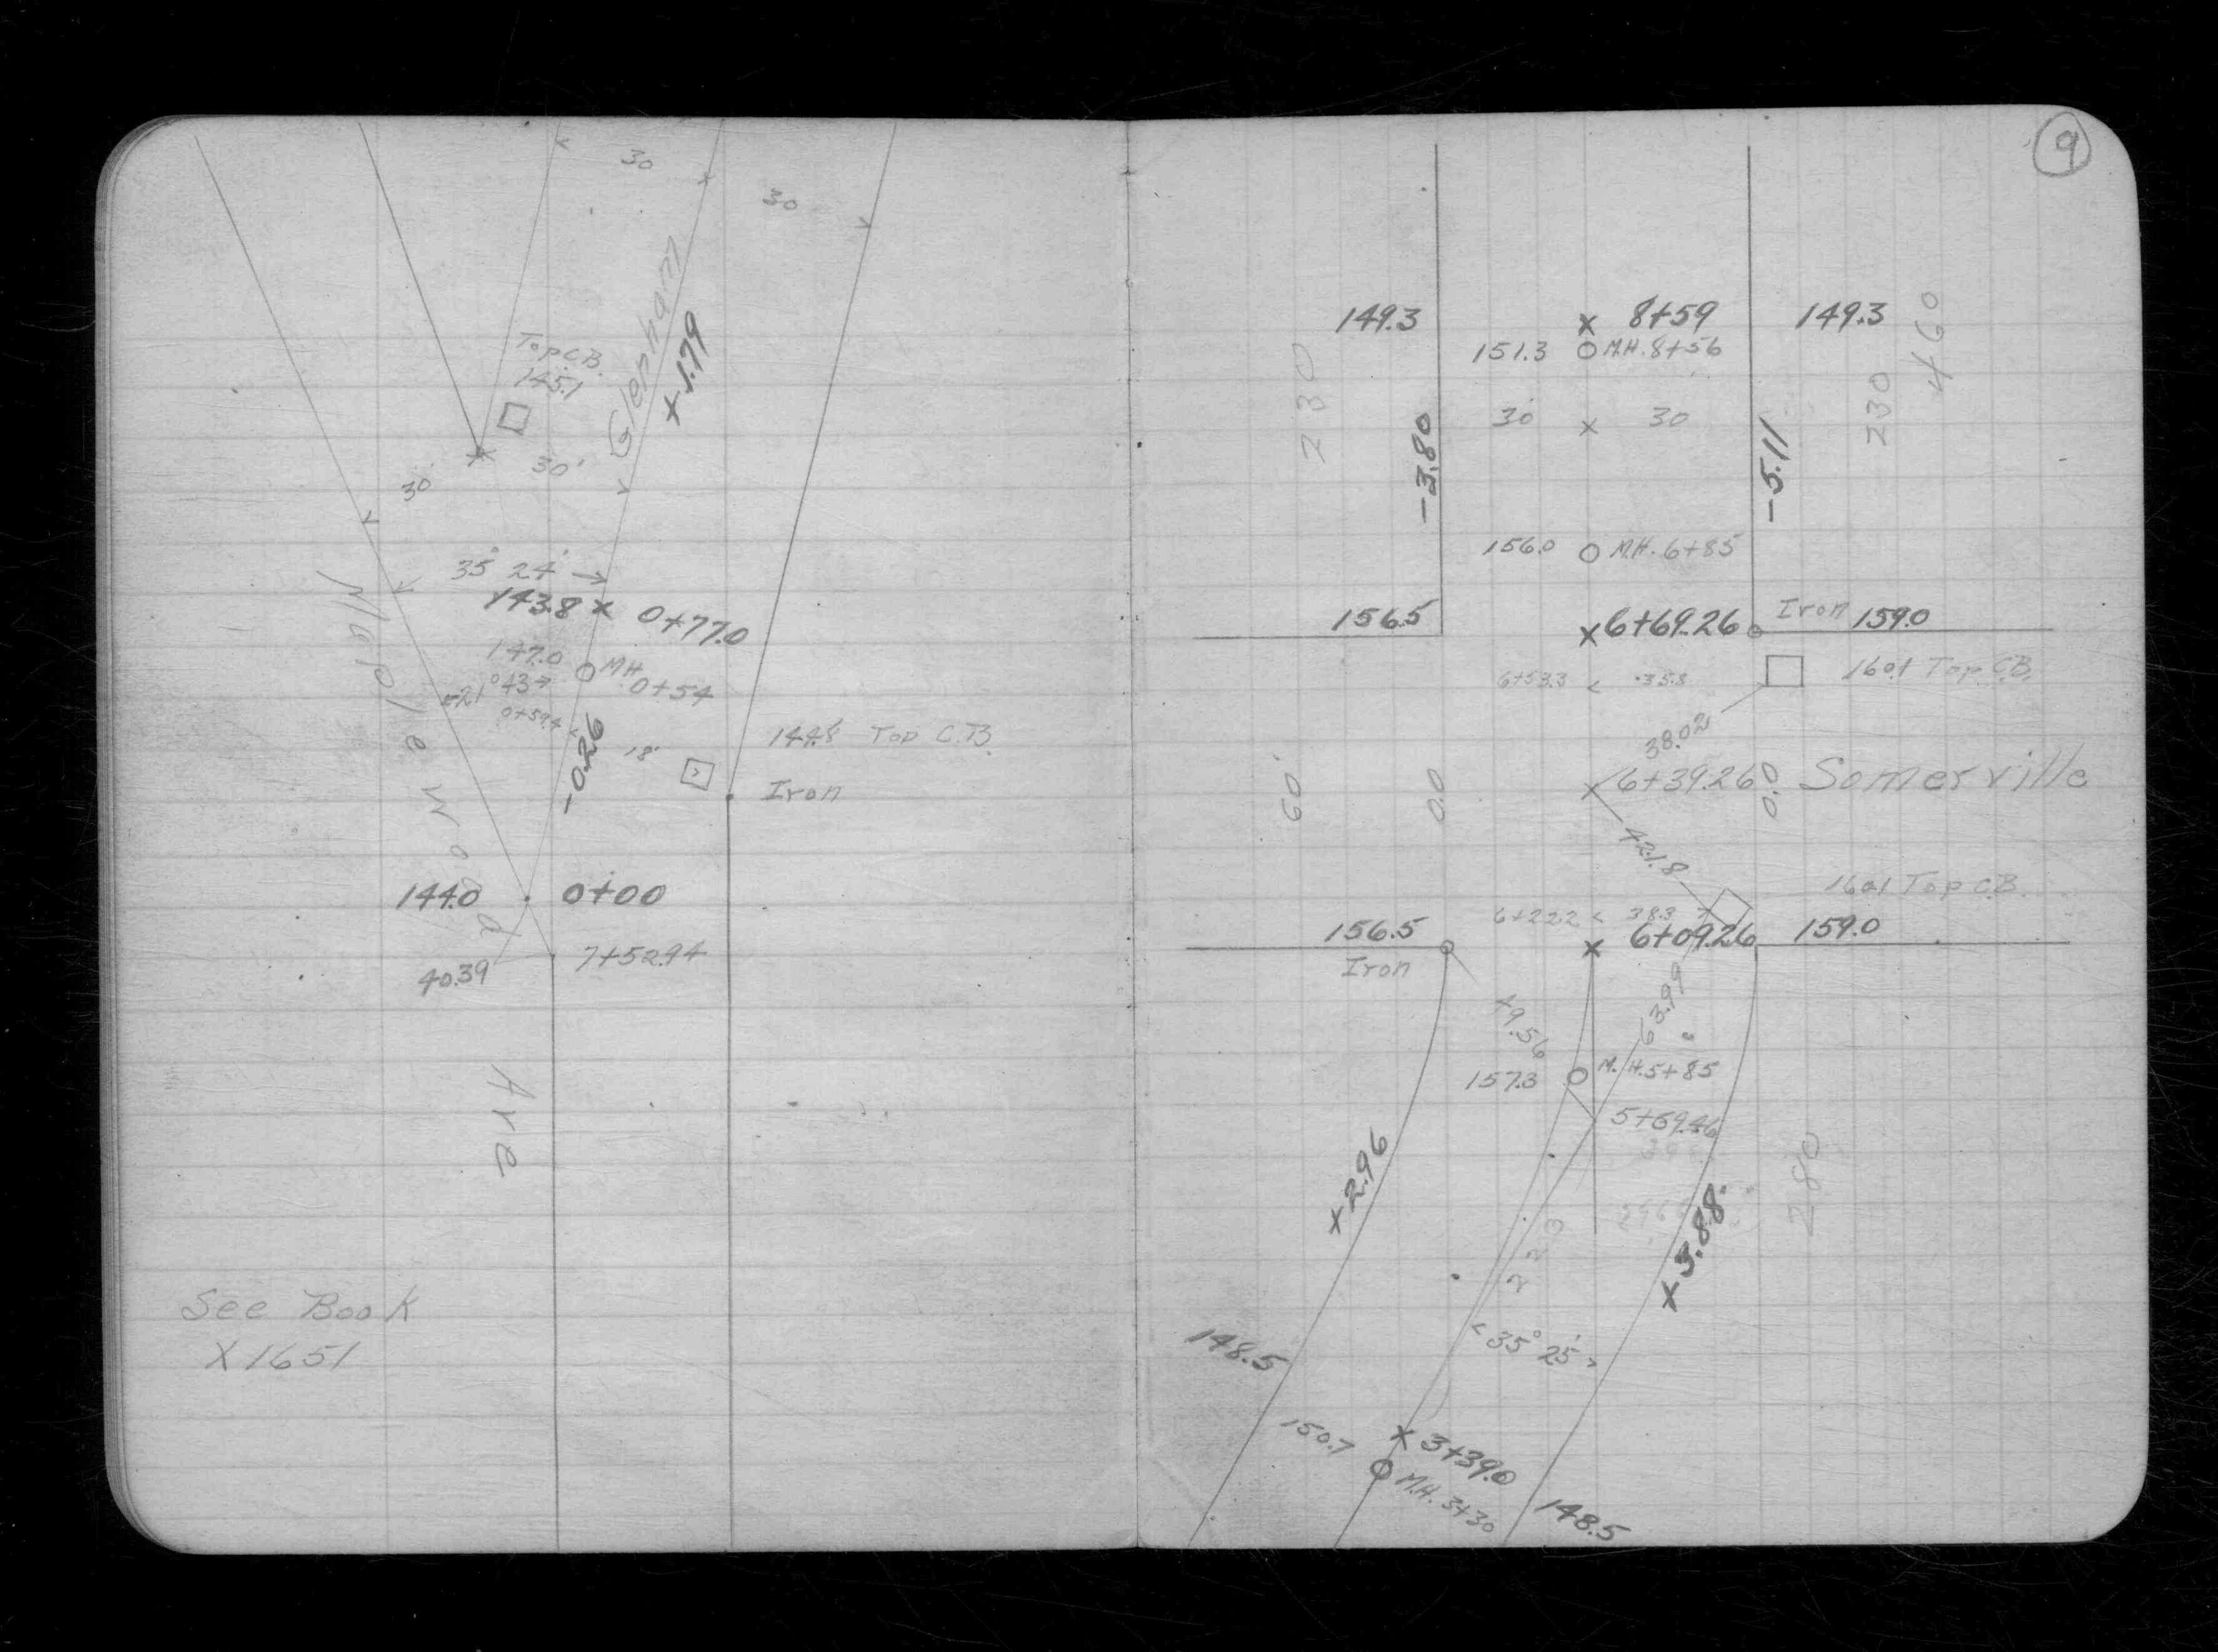 30
30
Glenham
+1.79
Top C.B.
145.1
30'
30
35° 24'
143.8 x 0+77.0
147.0 M.H. 0+54
21° 43'
0+59.4
-0.26
18'
144.8 Top C.B.
Iron
Maplewood Ave
144.0 0+00
40.39 7+52.94
See Book
X1651
9
149.3 x 8+59 149.3
151.3 M.H. 8+56
460
230
230
30 x 30
-3.80
-5.11
156.0 M.H. 6+85
156.5 x 6+69.26 Iron 159.0
6+53.3 35.8 160.1 Top C.B.
38.02
60' 0.0 6+39.26 0.0 Somerville
42.18
160.1 Top C.B.
6+22.2 38.3
156.5 x 6+09.26 159.0
Iron
49.56
63.99
157.3 M.H. 5+85
5+69.46
+2.96
+3.88
280
223
35° 25'
148.5
150.7 x 3+39.0
M.H. 3+30
148.5